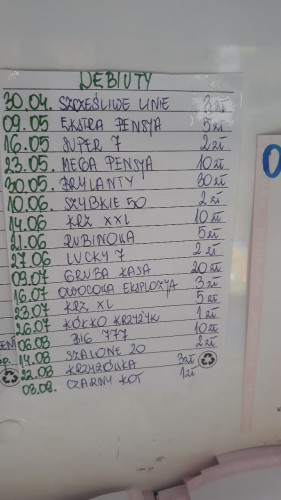 DEBIUTY
30.04. SZCZĘŚLIWE LINIE 3 zł
09.05 EKSTRA PENSJA 5 zł
16.05 SUPER 7 2 zł
23.05 MEGA PENSJA 10 zł
30.05 BRYLANTY 30 zł
10.06 SZYBKIE 50 2 zł
14.06 KRZ XXL 10 zł
21.06 RUBINOWA 5 zł
27.06 LUCKY 7 2 zł
09.07 GRUBA KASA 20 zł
16.07 OWOCOWA EKSPLOZJA 3 zł
23.07 KRZ XL 5 zł
26.07 KÓŁKO KRZYŻYK 1 zł
06.08 BIG 777 10 zł
14.08 SZALONE 20 2 zł
22.08 KRZYŻÓWKA 3 zł
CZARNY KOT 1 zł